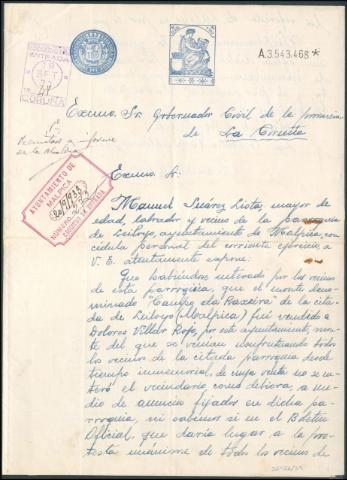 ENTRADA
SET
CORUÑA
A.3.543.468*
Excmo. Sr. Gobernador Civil de la provincia
de La Coruña
Remitido a informe
de la Alcaldía
Excmo. Sr.
AYUNTAMIENTO DE
MALPICA
NÚMERO
Manuel Suárez Lista, mayor de
edad, labrador y vecino de la parroquia
de Leiloyo, ayuntamiento de Malpica, con
cédula personal del corriente ejercicio, a
V. E. atentamente expone:
Que habiéndose enterado por los vecinos
de esta parroquia, que el monte deno-
minado "Campo da Raxeira" de la cita-
da de Leiloyo (Malpica) fué vendido a
Dolores Villar Rojo, por este ayuntamiento, mon-
te del que se venían usufructuando todos
los vecinos de la citada parroquia desde
tiempo inmemorial, de cuya venta no se en-
teró el vecindario, como debiera, a me-
dio de anuncios fijados en dicha pa-
rroquia, ni sabemos si en el Boletín
Oficial, que daría lugar a la pro-
testa unánime de todos los vecinos de